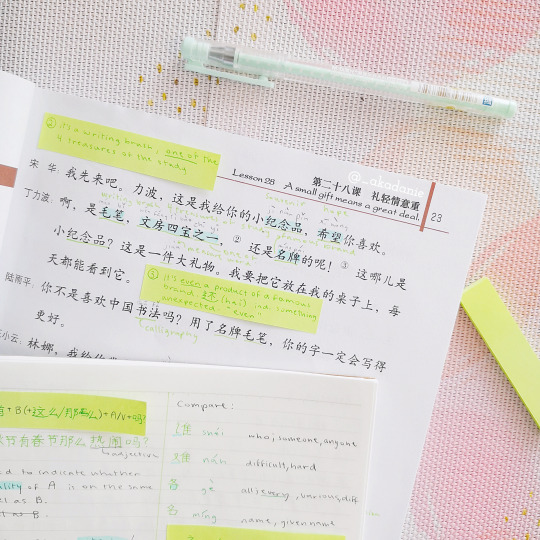 @_akadanie
第二十八课 礼轻情意重
Lesson 28 A small gift means a great deal.
23
② it's a writing brush, one of the
4 treasures of the study
宋 华: 我先来吧。力波,这是我给你的小纪念品,希望你喜欢。
souvenir hope
丁力波: 啊,是毛笔,文房四宝之一,② 还是名牌的呢! ③ 这哪儿是
小纪念品?这是一件大礼物。我要把它放在我的桌子上,每
天都能看到它。
③ it's even a product of a famous
brand. 还 (hái) ind. something
unexpected. "even"
陆雨平: 你不是喜欢中国书法吗?用了名牌毛笔,你的字一定会写得
calligraphy
更好。
小云: 林娜,我给你
+ B(+这么/那么)+A/V+吗?
节有春节那么热闹吗?
adjective
d to indicate whether
ality of A is on the same
el as B.
Compare:
谁 shéi who, someone, anyone
难 nán difficult, hard
各 gè all; every, various, diff
名 míng name, given name